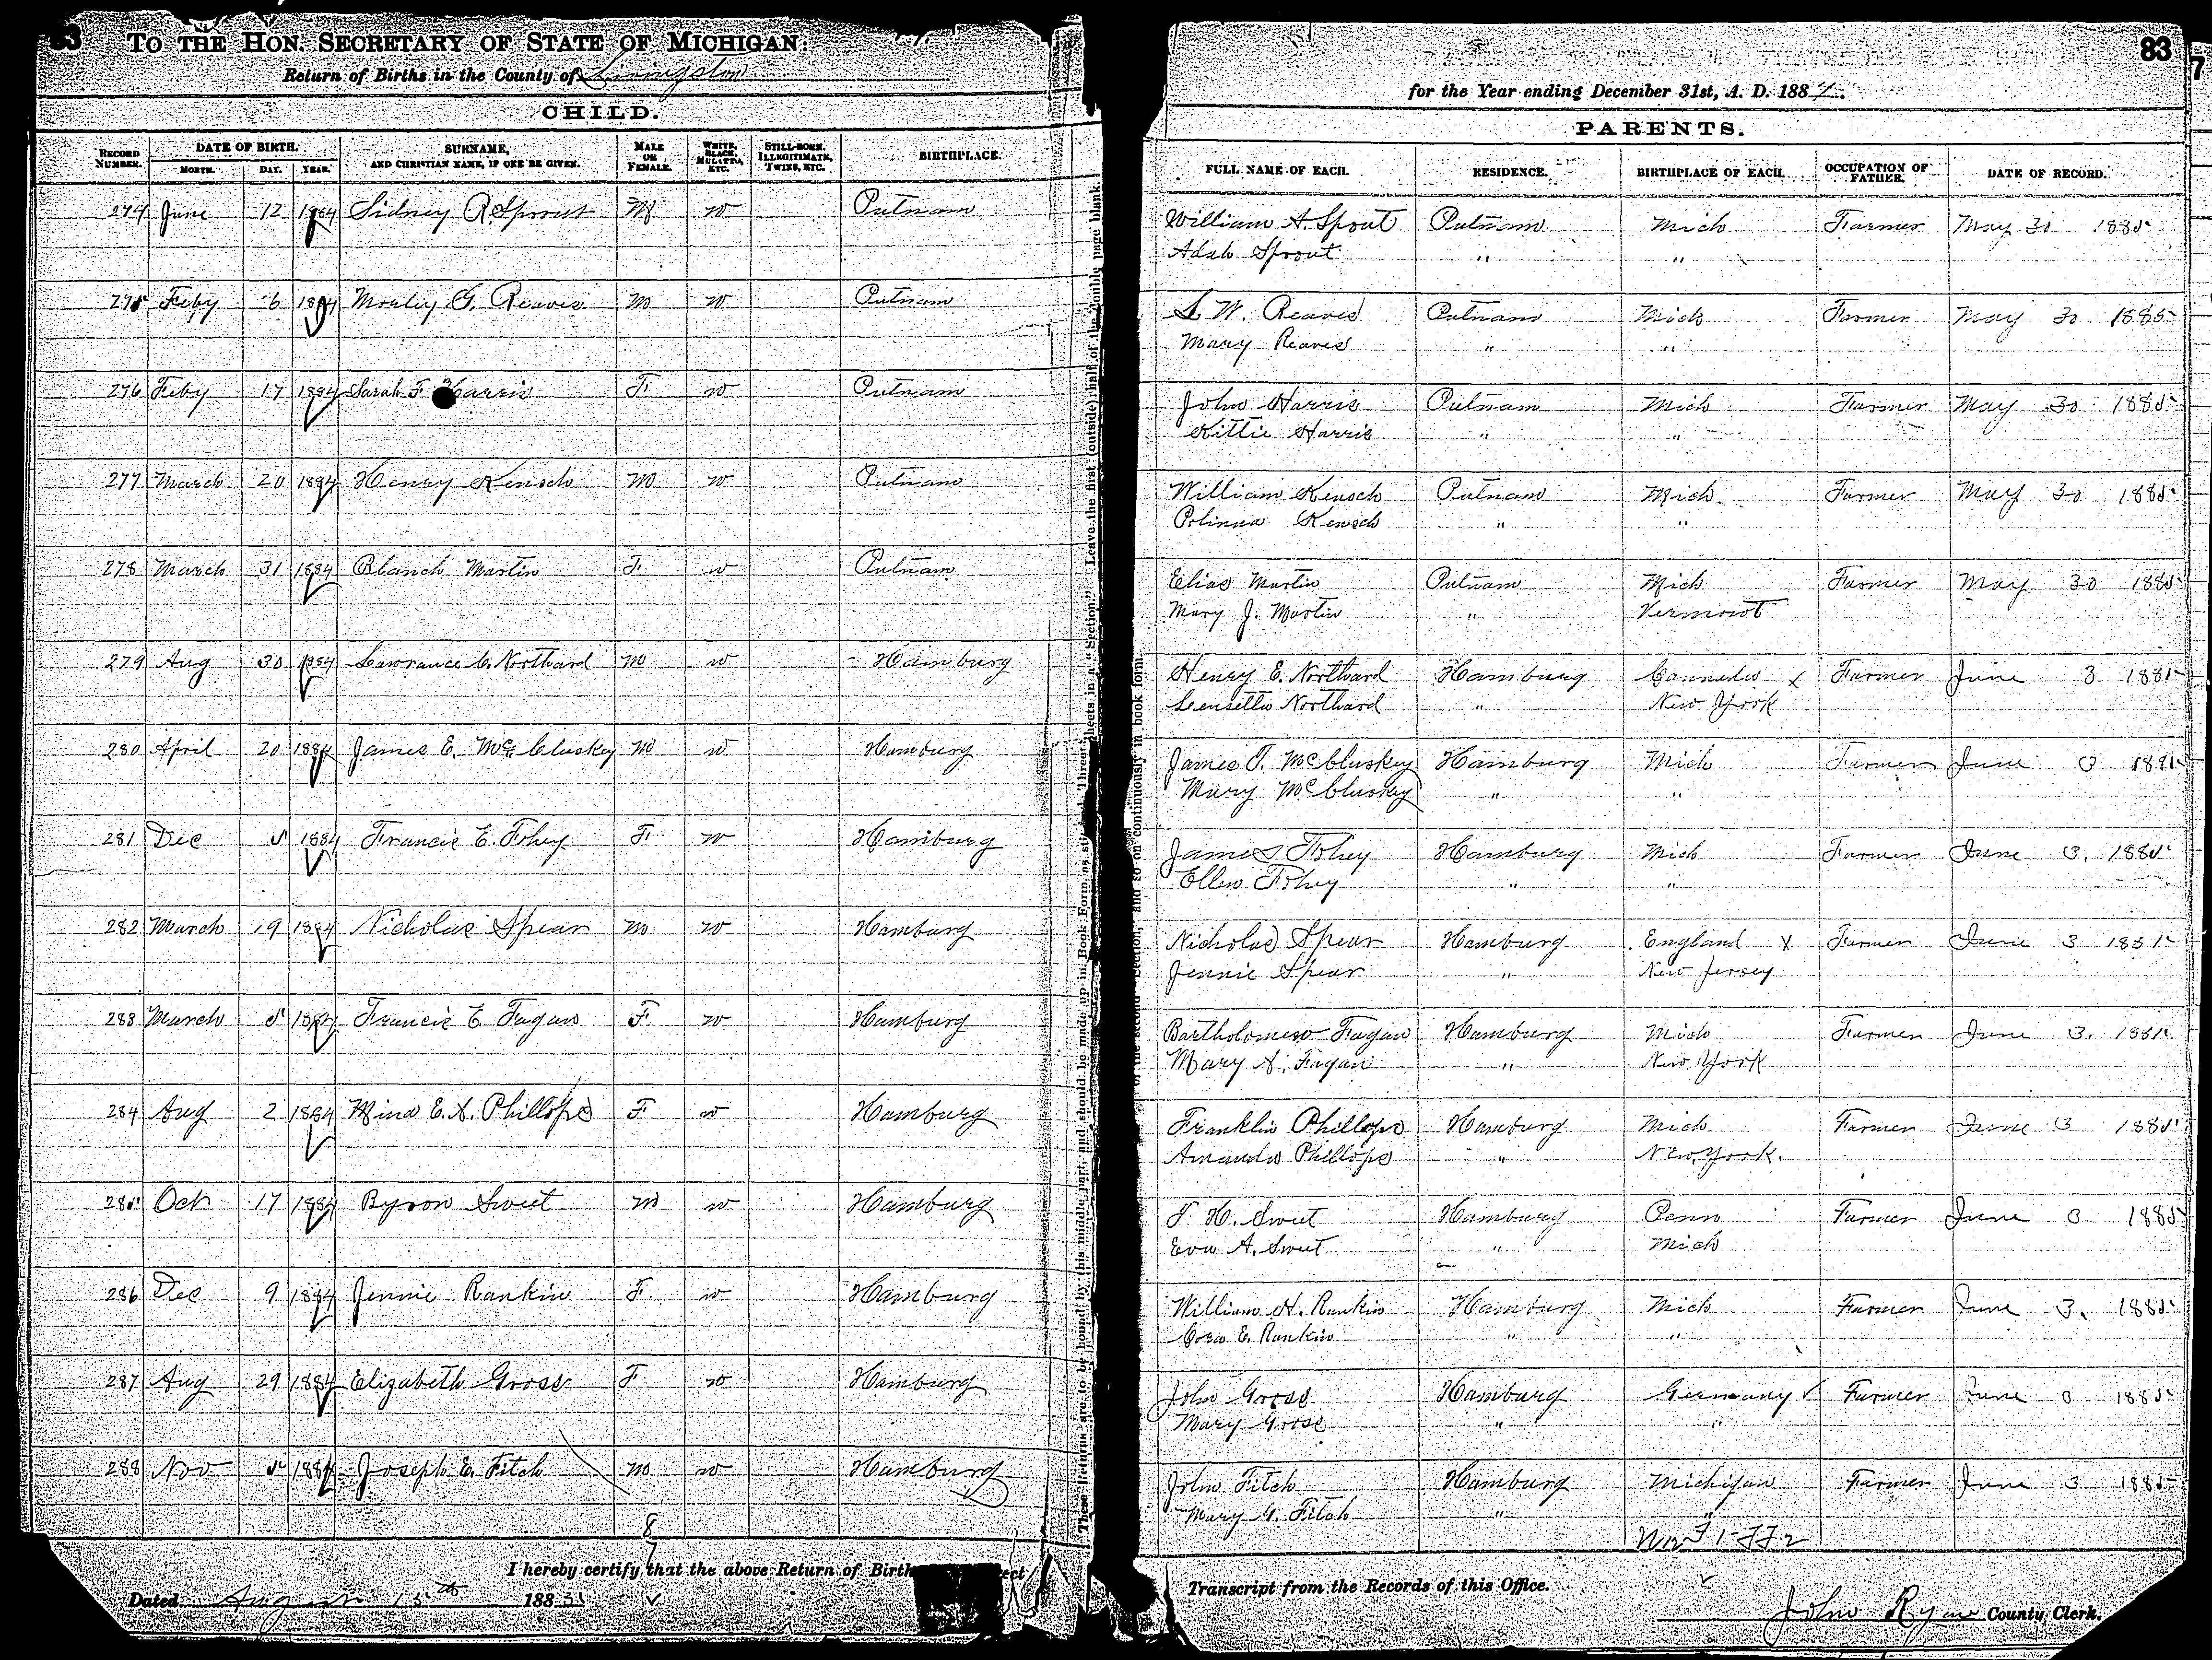 83
TO THE HON. SECRETARY OF STATE OF MICHIGAN:
Return of Births in the County of Livingston
CHILD.
RECORD NUMBER. DATE OF BIRTH. MONTH. DAY. YEAR. SURNAME, AND CHRISTIAN NAME, IF ONE BE GIVEN. MALE OR FEMALE. WHITE, BLACK, MULATTO, ETC. STILL-BORN, ILLEGITIMATE, TWINS, ETC. BIRTHPLACE.
274 June 12 1884 Sidney R Sprout M W Putnam
275 Feby 6 1884 G. Reaves M W Putnam
276 Feby 17 1884 Sarah F Harris F W Putnam
277 March 20 1884 Henry Kensch M W Putnam
278 March 31 1884 Blanch Martin F W Putnam
279 Aug 30 1884 Lawrance C. Northard M W Hamburg
280 April 20 1884 James E. McCluskey M W Hamburg
281 Dec 5 1884 Francis E. Fohey F W Hamburg
282 March 19 1884 Nicholas Spear M W Hamburg
283 March 5 1884 Francis E Fagan F W Hamburg
284 Aug 2 1884 Mina E. A. Phillops F W Hamburg
285 Oct 17 1884 Byron Sweet M W Hamburg
286 Dec 9 1884 Jennie Rankin F W Hamburg
287 Aug 29 1884 Elizabeth Gross F W Hamburg
288 Nov 5 1884 Joseph E. Fitch M W Hamburg
8
7
I hereby certify that the above Return of Birth
Dated August 15th 1885
83
for the Year ending December 31st, A. D. 1884.
PARENTS.
FULL NAME OF EACH. RESIDENCE. BIRTHPLACE OF EACH. OCCUPATION OF FATHER. DATE OF RECORD.
William A. Sprout Putnam Mich Farmer May 30 1885
Adah Sprout " "
S. W. Reaves Putnam Mich Farmer May 30 1885
Mary Reaves " "
John Harris Putnam Mich Farmer May 30 1885
Kittie Harris " "
William Kensch Putnam Mich. Farmer May 30 1885
Kensch " "
Elias Martin Putnam Mich Farmer May 30 1885
Mary J. Martin " Vermont
Henry E. Northard Hamburg Cannada x Farmer June 3 1885
Northard " New York
James T. McCluskey Hamburg Mich Farmer June 3 1885
Mary McCluskey " "
James Fohey Hamburg Mich Farmer June 3. 1885
Ellen Fohey " "
Nicholas Spear Hamburg England x Farmer June 3 1885
Jennie Spear " New Jersey
Bartholomew Fagan Hamburg Mich Farmer June 3. 1885
Mary A. Fagan " New York
Franklin Phillops Hamburg Mich Farmer June 3 1885
Amanda Phillops " New York.
F. H. Sweet Hamburg Penn Farmer June 3 1885
Eva A. Sweet " Mich
William H. Rankin Hamburg Mich Farmer June 3. 1885
Cora E. Rankin " "
John Gross Hamburg Germany Farmer June 3 1885
Mary Gross " "
John Fitch Hamburg Michigan Farmer June 3 1885
Mary G. Fitch " "
Transcript from the Records of this Office.
John Ryan County Clerk.